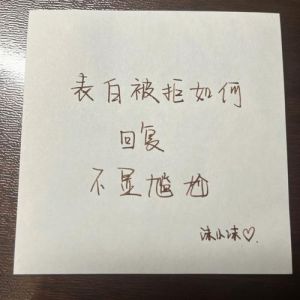 表白被拒如何
回复
不显尴尬
沐小沐♡.